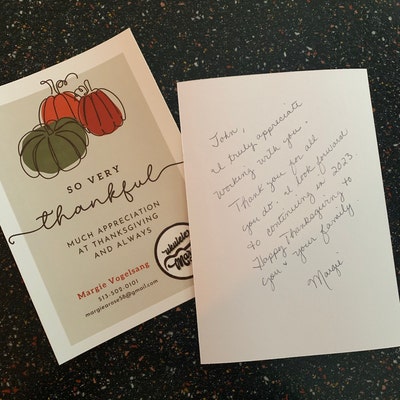 SO VERY
thankful
MUCH APPRECIATION
AT THANKSGIVING
AND ALWAYS
Margie Vogelsang
513.502.0101
margiearose58@gmail.com
John,
I truly appreciate
working with you.
Thank you for all
you do. I look forward
to continuing in 2023
Happy Thanksgiving to
you + your family.
Margie